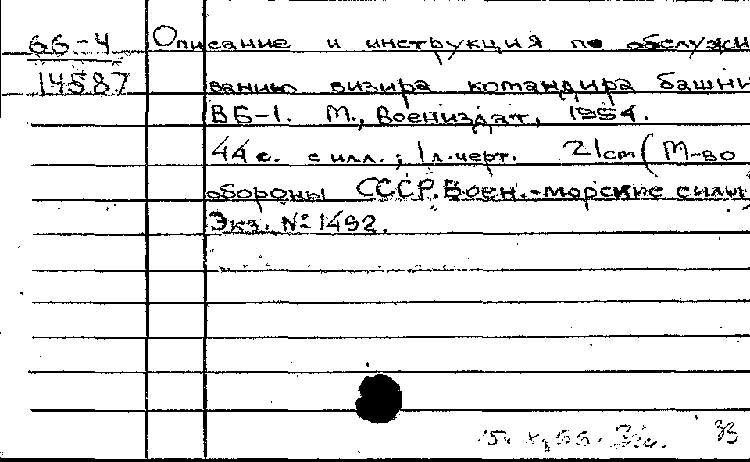 66-4
14587
Описание и инструкция по обслужи
ванию визира командира башни
ВБ-1. М., Воениздат, 1954.
44 с. с илл.; 1 л. черт. 21 cm (М-во
обороны СССР. Воен.-морские силы)
Экз. № 1492.